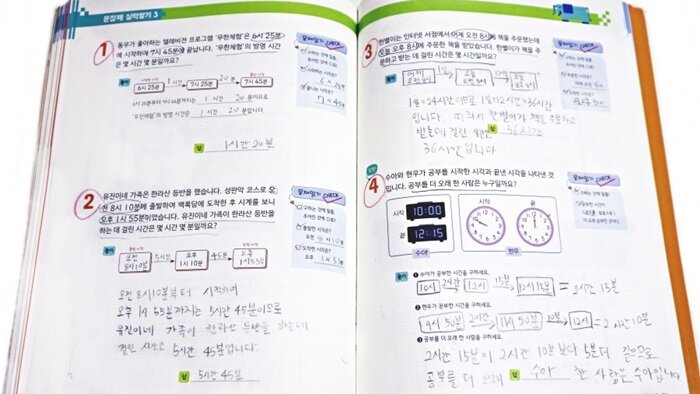 문장제 실력쌓기 3
1
동우가 좋아하는 텔레비전 프로그램 '무한체험'은 6시 25분
에 시작하여 7시 45분에 끝납니다. '무한체험'의 방영 시간
은 몇 시간 몇 분일까요?
문제읽기 CHECK
6시 25분
7시 45분
풀이
6시 25분
1시간
7시 25분
20분
7시 45분
6시 25분부터 7시 45분까지는 1 시간 20 분이므로
'무한체험'의 방영 시간은 1 시간 20 분입니다.
답 1시간 20분
2
유진이네 가족은 한라산 등반을 했습니다. 성판악 코스로 오
전 8시 10분에 출발하여 백록담에 도착한 후 시계를 보니
오후 1시 55분이었습니다. 유진이네 가족이 한라산 등반을
하는 데 걸린 시간은 몇 시간 몇 분일까요?
문제읽기 CHECK
풀이
오전
8시 10분
5시간
오후
1시 10분
45분
오후
1시 55분
오전 8시 10분부터 시작하여
오후 1시 55분까지는 5시간 45분이므로
유진이네 가족이 한라산 등반을 하는데
걸린 시간은 5시간 45분입니다.
답 5시간 45분
3
한별이는 인터넷 서점에서 어제 오전 8시에 책을 주문했는데
오늘 오후 8시에 주문한 책을 받았습니다. 한별이가 책을 주
문하고 받는 데 걸린 시간은 몇 시간일까요?
문제읽기 CHECK
풀이
1일=24시간이므로 1일+12시간=36시간
입니다. 따라서 한별이가 책을 주문하고
받는데 걸린 시간은
답 36시간
36시간입니다
4
수아와 현우가 공부를 시작한 시각과 끝낸 시각을 나타낸 것
입니다. 공부를 더 오래 한 사람은 누구일까요?
문제읽기 CHECK
시작 10:00
끝 12:15
수아
시작
끝
현우
풀이
❶ 수아가 공부한 시간을 구하세요.
10시 2시간 12시 15분 12시 15분 = 2시간 15분
❷ 현우가 공부한 시간을 구하세요.
9시 50분 2시간 11시 50분 10분 12시 = 2시간 10분
❸ 공부를 더 오래 한 사람을 구하세요.
2시간 15분이 2시간 10분보다 5분 더 길으므로
공부를 더 오래 답 수아 한 사람은 수아입니다